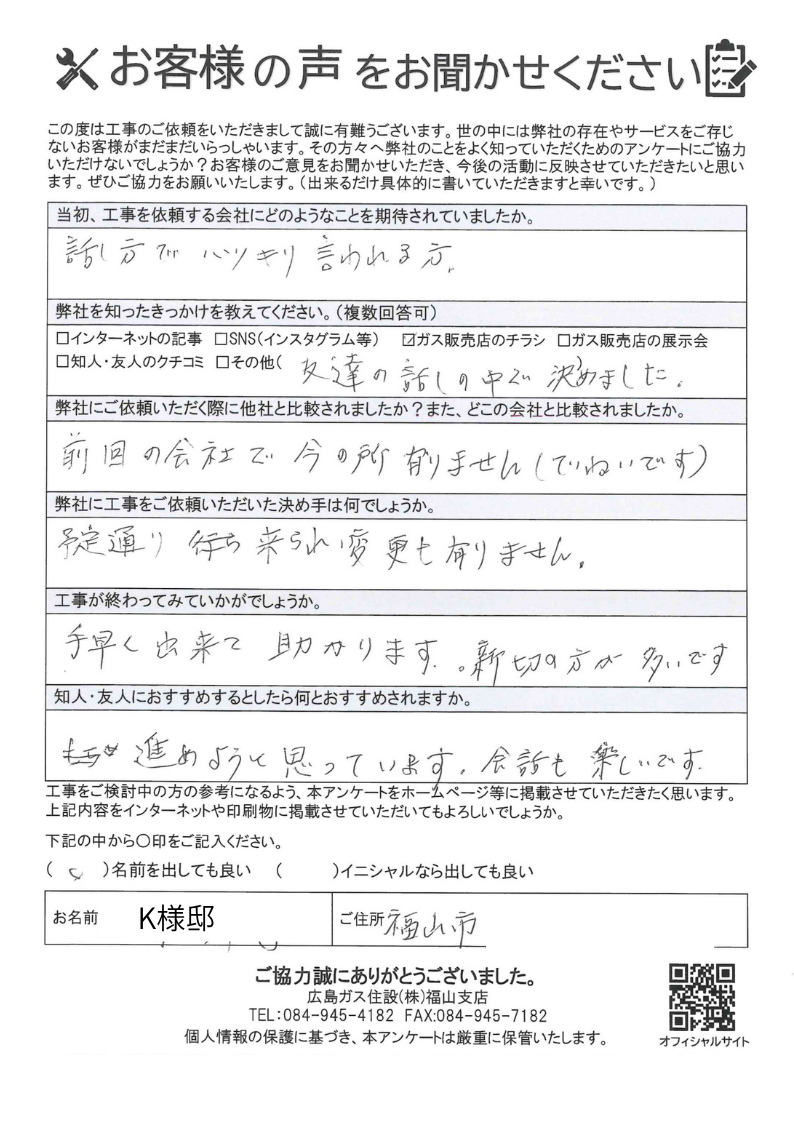 お客様の声をお聞かせください
この度は工事のご依頼をいただきまして誠に有難うございます。世の中には弊社の存在やサービスをご存じ
ないお客様がまだまだいらっしゃいます。その方々へ弊社のことをよく知っていただくためのアンケートにご協力
いただけないでしょうか？お客様のご意見をお聞かせいただき、今後の活動に反映させていただきたいと思い
ます。ぜひご協力をお願いいたします。（出来るだけ具体的に書いていただきますと幸いです。）
当初、工事を依頼する会社にどのようなことを期待されていましたか。
話し方でハッキリ言われる方。
弊社を知ったきっかけを教えてください。（複数回答可）
□インターネットの記事 □SNS（インスタグラム等） ☑ガス販売店のチラシ □ガス販売店の展示会
□知人・友人のクチコミ □その他（ 友達の話しの中で決めました。
弊社にご依頼いただく際に他社と比較されましたか？また、どこの会社と比較されましたか。
前回の会社で今の所有りません（ていねいです）
弊社に工事をご依頼いただいた決め手は何でしょうか。
予定通り 来られ変更も有りません。
工事が終わってみていかがでしょうか。
手早く出来て助かります。。親切の方が多いです
知人・友人におすすめするとしたら何とおすすめされますか。
進めようと思っています。会話も楽しいです。
工事をご検討中の方の参考になるよう、本アンケートをホームページ等に掲載させていただきたく思います。
上記内容をインターネットや印刷物に掲載させていただいてもよろしいでしょうか。
下記の中から〇印をご記入ください。
（ ）名前を出しても良い （ ）イニシャルなら出しても良い
お名前 K様邸 ご住所 福山市
ご協力誠にありがとうございました。
広島ガス住設（株）福山支店
TEL：084-945-4182 FAX:084-945-7182
個人情報の保護に基づき、本アンケートは厳重に保管いたします。
オフィシャルサイト